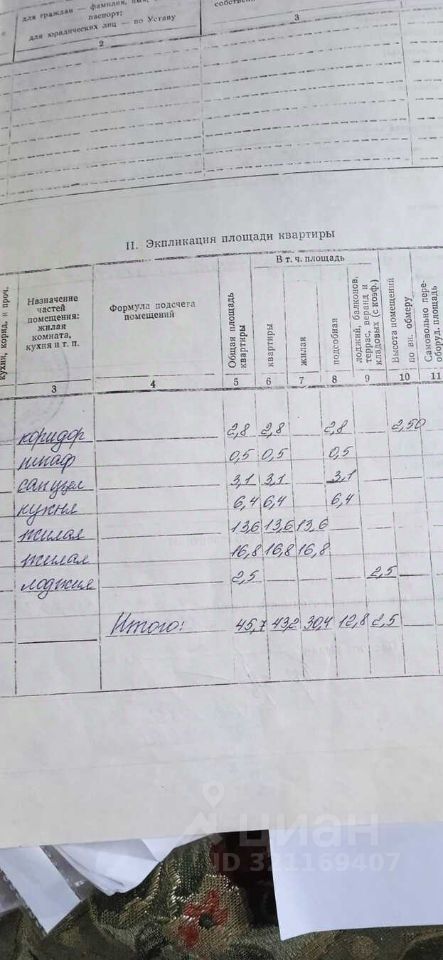 для граждан — фамилия, имя,
паспорт;
для юридических лиц — по Уставу
собствен
2
3
II. Экспликация площади квартиры
кухни, корид. и проч.
Назначение частей помещения: жилая комната, кухня и т. п.
Формула подсчета помещений
Общая площадь квартиры
В т. ч. площадь
квартиры
жилая
подсобная
лоджий, балконов, террас, веранд и кладовых (с коэф.)
Высота помещений по вн. обмеру
Самовольно пере- оборуд. площадь
3 4 5 6 7 8 9 10 11
коридор 2,8 2,8 2,8 2,50
шкаф 0,5 0,5 0,5
санузел 3,1 3,1 3,1
кухня 6,4 6,4 6,4
жилая 13,6 13,6 13,6
жилая 16,8 16,8 16,8
лоджия 2,5 2,5
Итого: 45,7 43,2 30,4 12,8 2,5
циан
ID 321169407